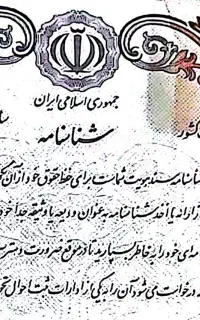 جمهوری اسلامی ایران
شناسنامه
کشور
شناسنامه سند هویت شماست برای حفظ حقوق خود از آن
از ارائه یا اخذ شناسنامه به عنوان ودیعه یا وثیقه جداً خود
خود را به خاطر بسپارید تا در موقع ضرورت دسترسی
درخواست می‌شود آن را به یکی از ادارات ثبت احوال تحویل